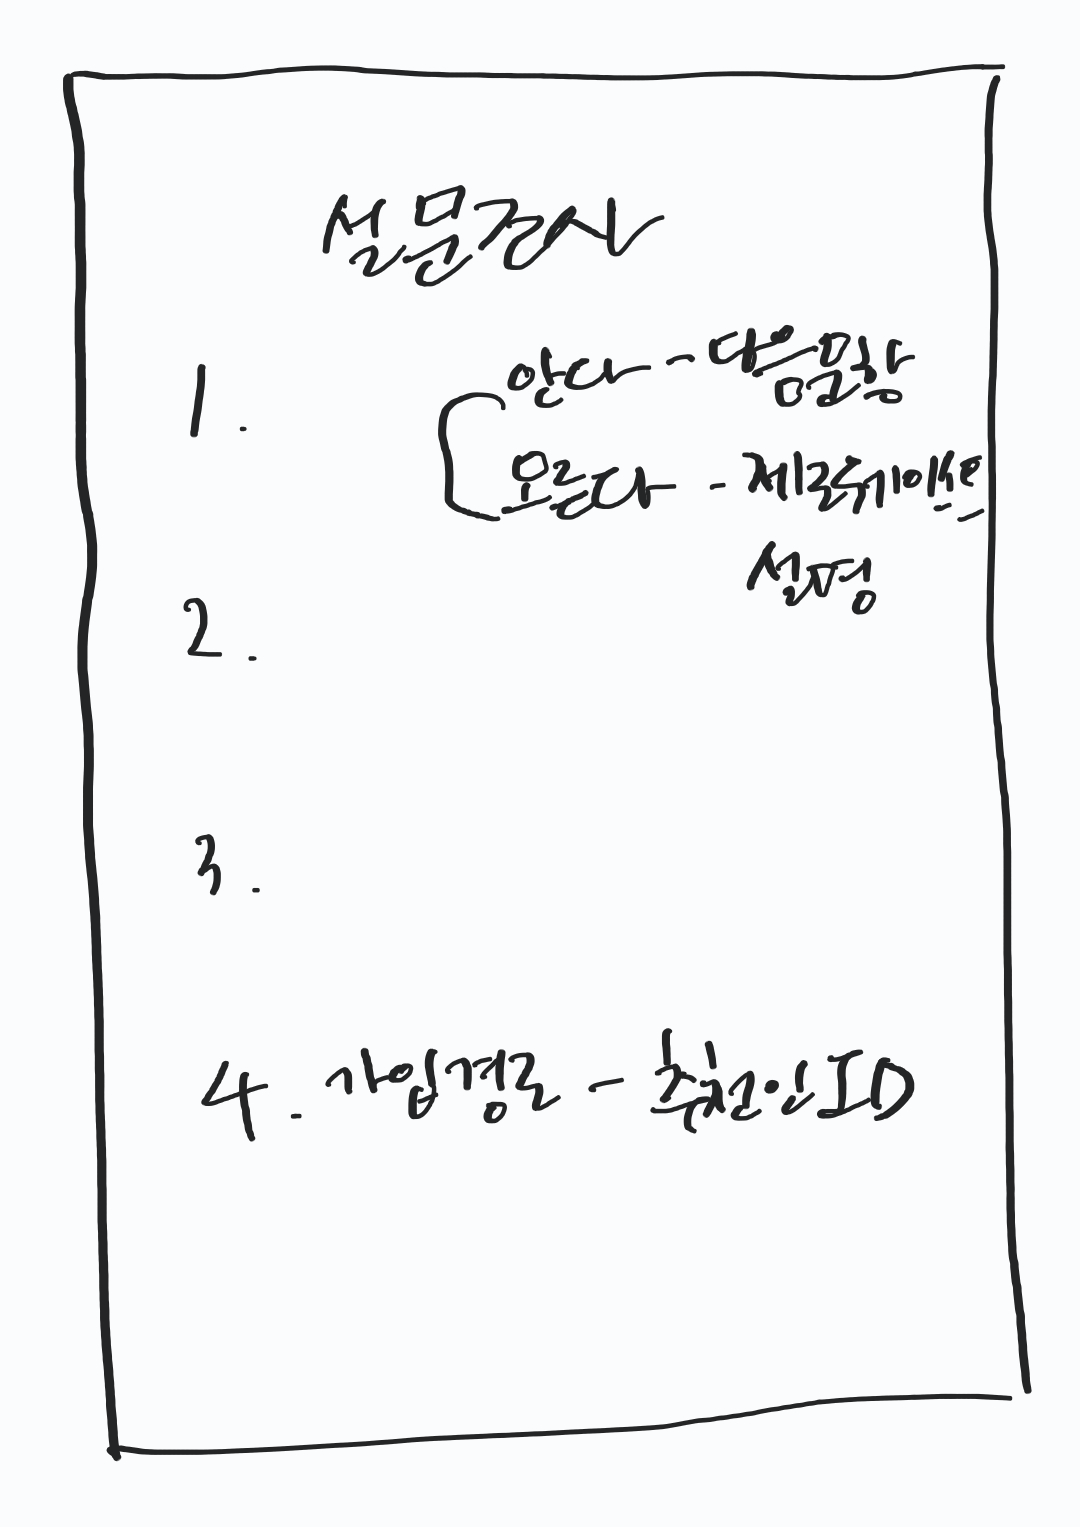 설문조사
1. 안다 - 다음문항
모른다 - 제로웨이스트
설명
2.
3.
4. 가입경로 - 추천인ID